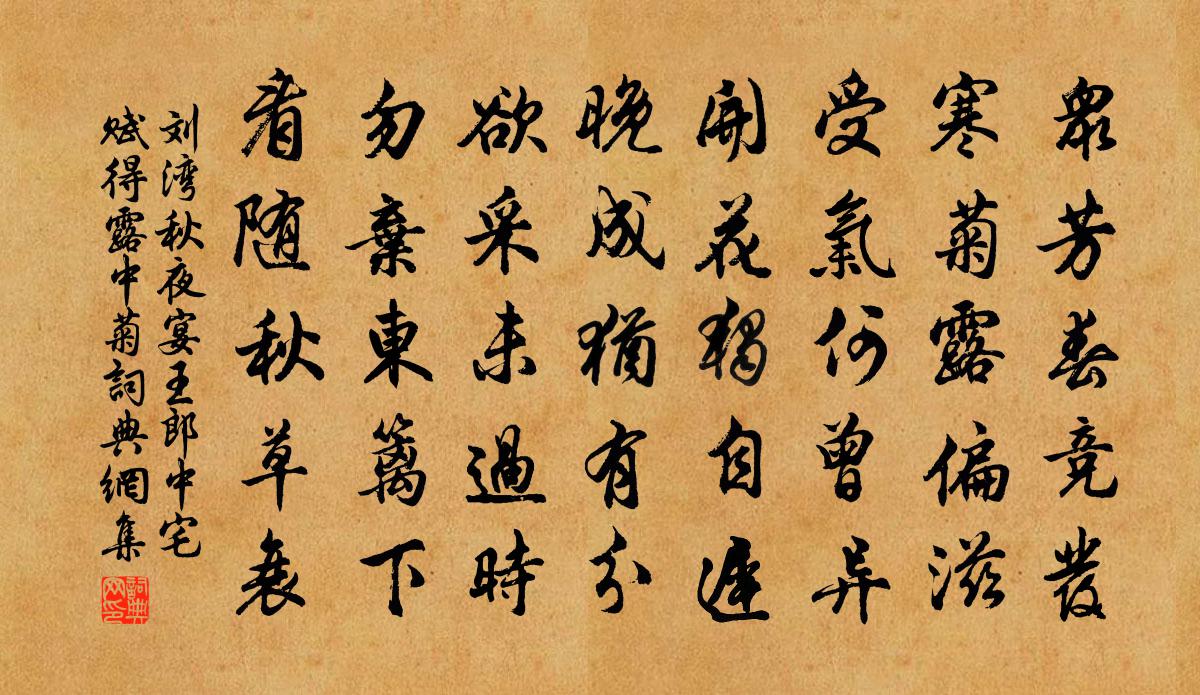 眾芳春競發
寒菊露偏滋
受氣何曾异
開花獨自遲
晚成猶有分
欲采未過時
勿棄東籬下
看随秋草衰
刘湾秋夜宴王郎中宅
赋得露中菊詞典網集
詞典网印